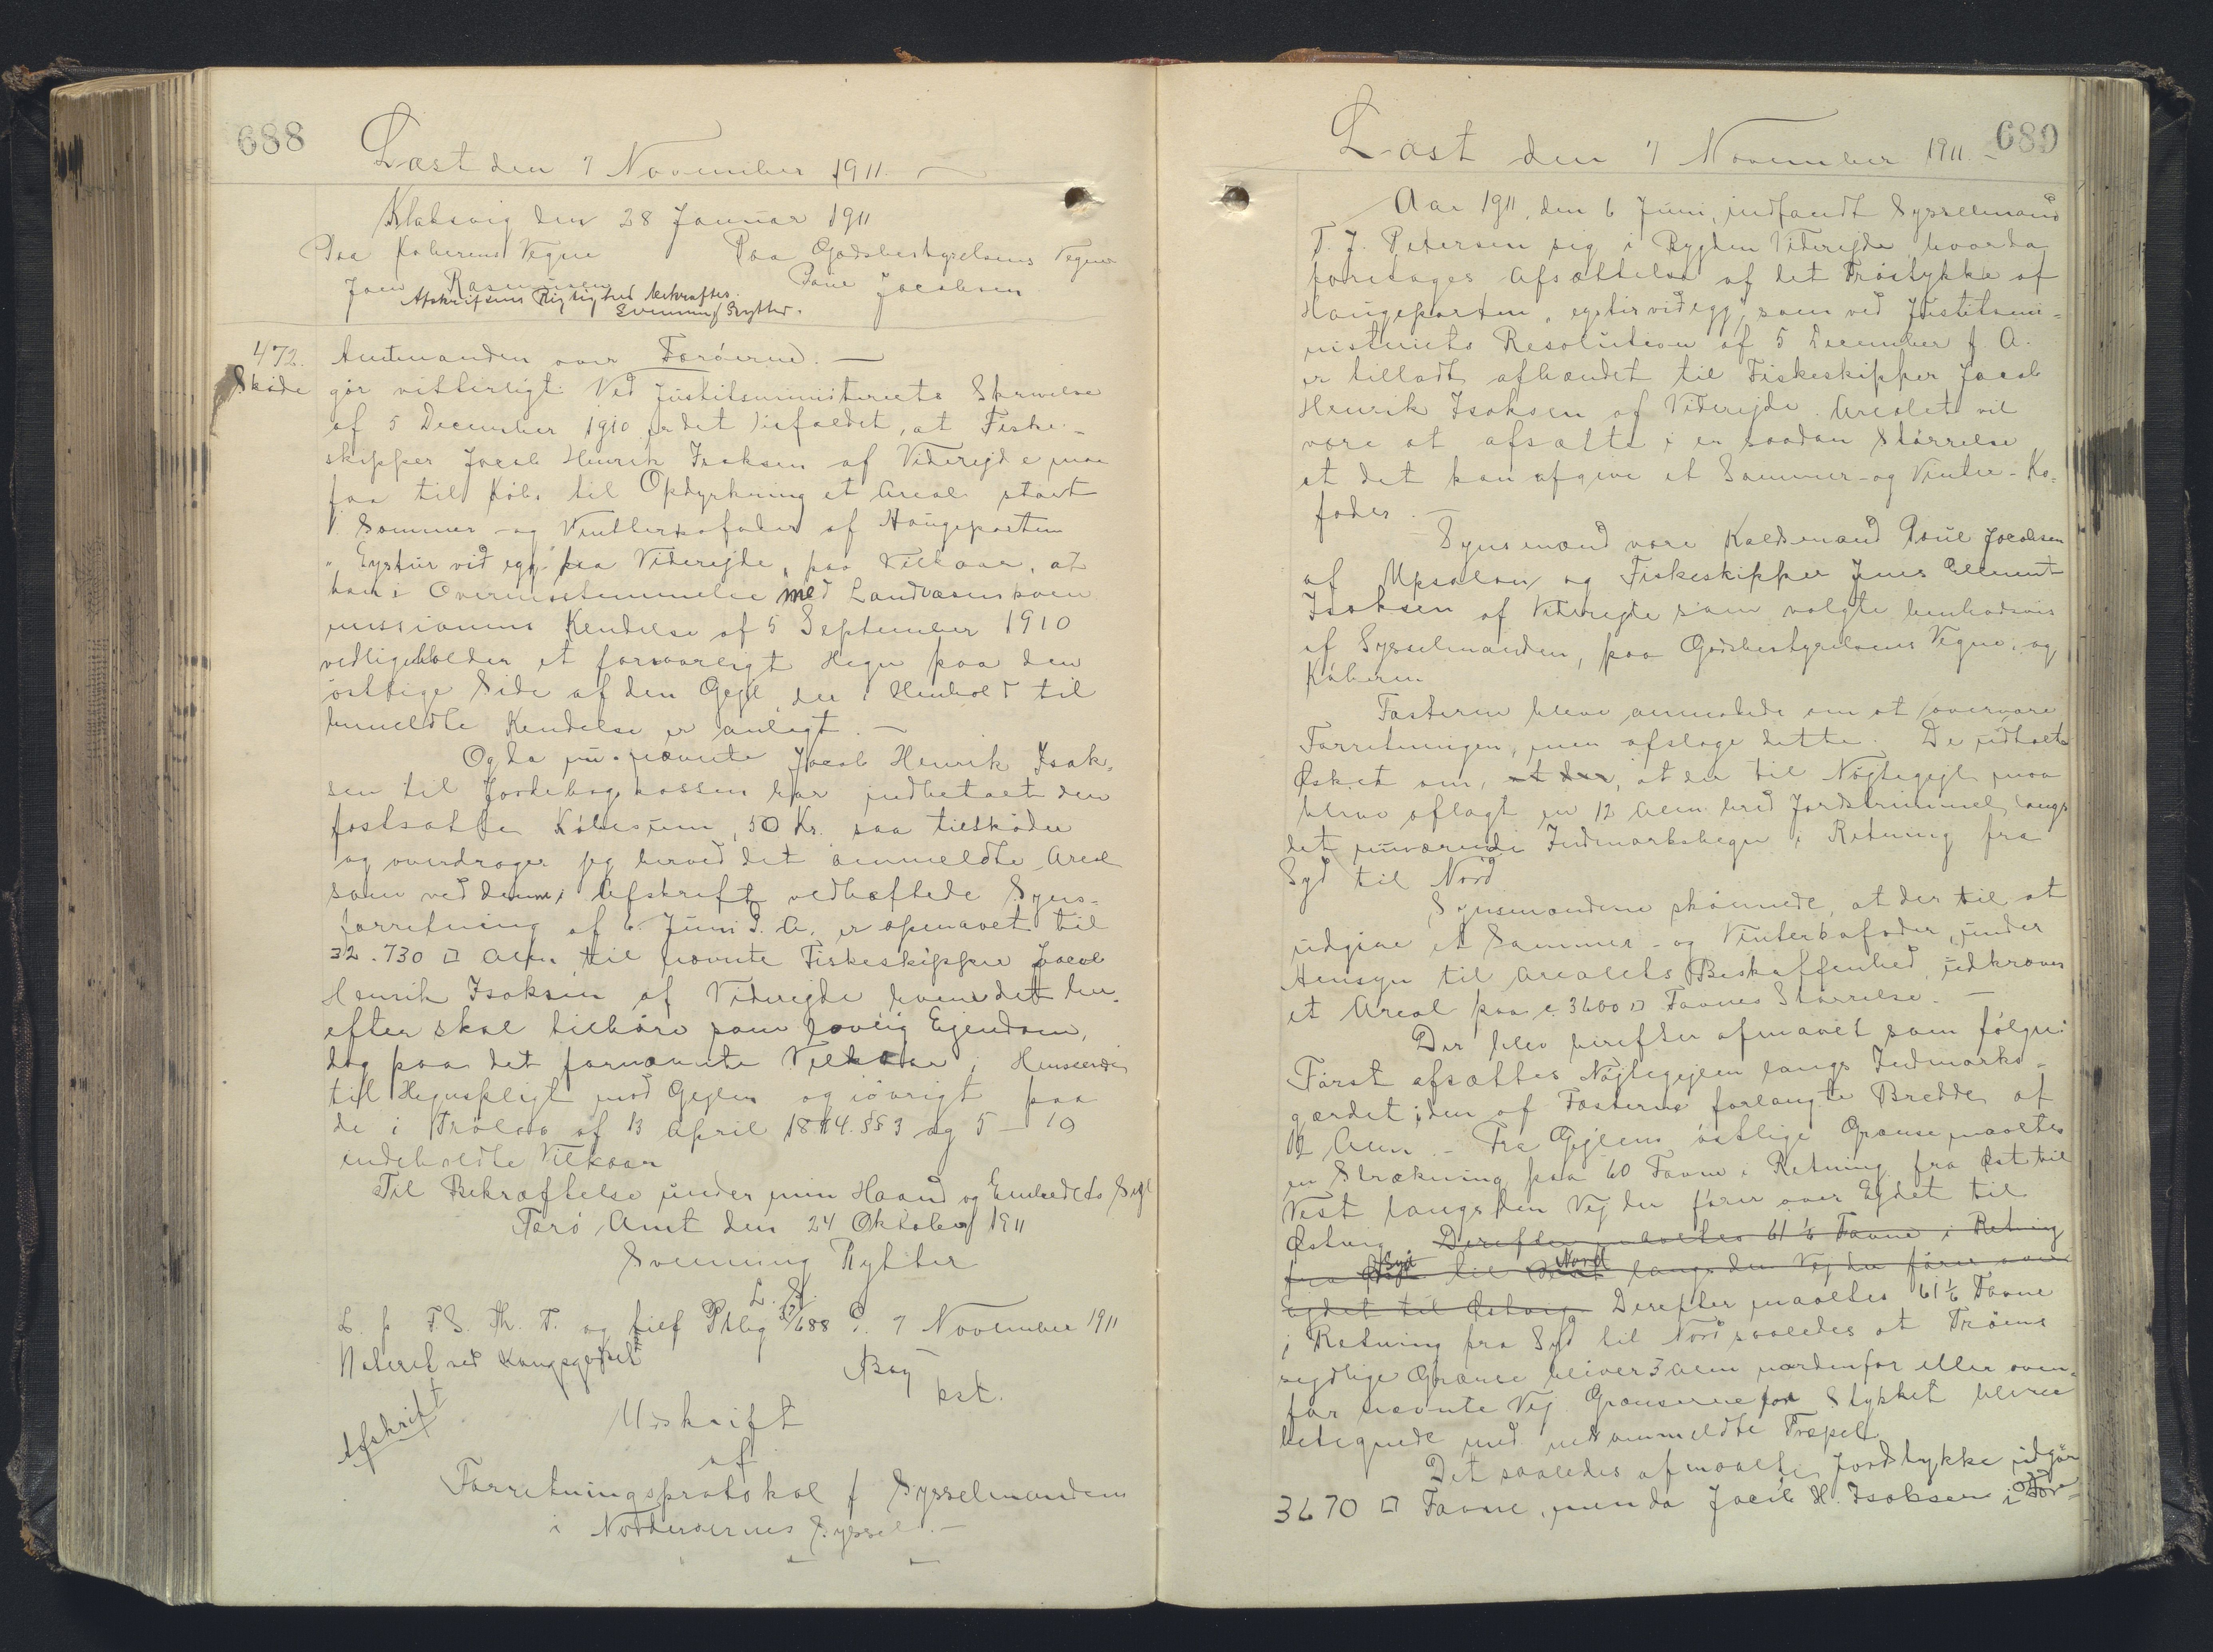 688
Læst den 7 November 1911.
Klaksvig den 28 Januar 1911
Paa Køberens Vegne Paa Godsbestyrelsens Vegne
Joen Rasmussen Poul Jacobsen
Afskriftens Rigtighed bekræftes.
Svenning Rytter.
472. Amtmanden over Færøerne. —
Skøde gør vitterligt: Ved Justitsministeriets Skrivelse
af 5 December 1910 er det bifaldet, at Fiske-
skipper Jacob Henrik Isaksen af Viderejde maa
faa til Købs til Opdyrkning et Areal stort
1. Sommer- og Vinterkofoder af Haugeparten
"Eystur við egg" paa Viderejde, paa Vilkaar, at
han i Overensstemmelse med Landvæsenskom
missionens Kendelse af 5 September 1910
vedligeholder et forsvarligt Hegn paa den
østlige Side af den Gejl, der i Henhold til
bemeldte Kendelse er anlagt. —
Og da nu nævnte Jacob Henrik Isak-
sen til Jordebogskassen har indbetalt den
fastsatte Købesum, 50 Kr. saa tilskøder
og overdrager jeg herved det ommeldte Areal
som ved den i Afskrift vedhæftede Syns-
forretning af 6. Juni d. A. er opmaalt til
32.730 □ Alen til nævnte Fiskeskipper Jacob
Henrik Isaksen af Viderejde hvem det her-
efter skal tilhøre som lovlig Ejendom,
dog paa det fornævnte Vilkaar i Henseende
til Hegnspligt mod Gejlen og iøvrigt paa
de i Trølov af 13 April 1894 §§ 3 og 5 — 10
indeholdte Vilkaar
Til Bekræftelse under min Haand og Embedets Segl
Færø Amt den 24 Oktober 1911
Svenning Rytter
L. S.
L. p F. S. Th. T. og tilf Ptbg 688 7 November 1911
Noteret ved Kongsgodset
Bay
kst.
Afskrift
Udskrift
af
Forretningsprotokol f Sysselmanden
i Norderøernes Syssel. —
689
Læst den 7 November 1911. —
Aar 1911, den 6 Juni, indfandt Sysselmand
T. J. Petersen sig i Bygden Viderejde hvorda
foretages Afsættelse af det Trøstykke af
Haugeparten, "eystir við egg", som ved Justitsmi-
nisteriets Resolution af 5 December f. A.
er tilladt afhændet til Fiskeskipper Jacob
Henrik Isaksen af Viderejde. Arealet vil
være at afsætte i en saadan Størrelse
at det kan afgive et Sommer- og Vinter-Ko-
foder. —
Synsmænd vare Kaldsmand Poul Jacobsen
af Upsalon og Fiskeskipper Jens Clement
Isaksen af Viderejde som valgte henholdsvis
af Sysselmanden, paa Godsbestyrelsens Vegne, og
Køberen
Fæsterne bleve anmodede om at overvære
Forretningen, men afsloge dette. De udtalte
Ønsket om, at der, at der til Nøjtegejl maa
blive aflagt en 12 Alen bred Jordstrimmel langs
det nuværende Indmarkshegn i Retning fra
Syd til Nord
Synsmændene skønnede, at der til at
udgive et Sommer- og Vinterkofoder, under
Hensyn til Arealets Beskaffenhed, udkræves
et Areal paa c 3600 □ Favnes Størrelse. —
Der blev herefter afmaalt som følger:
Først afsættes Nøjtegejlen langs Indmarks-
gærdet i den af Fæsterne forlangte Bredde af
12 Alen. — Fra Gejlens østlige Grænse maaltes
en Strækning paa 60 Favne i Retning fra Øst til
Vest langs den Vej der fører over Ejdet til
Østvig. Derefter maaltes 61 1/6 Favne i Retning
fra Syd til Nord langs den Vej der fører over
Ejdet til Østvig. Derefter maaltes 61 1/6 Favne
i Retning fra Syd til Nord saaledes at Trøens
sydlige Grænse bliver 3 Alen nordenfor eller oven-
for nævnte Vej Grænserne for Stykket bleve
betegnede med nedrammede Træpæle
Det saaledes afmaalte Jordstykke udgør
3670 □ Favne, men da Jacob H. Isaksen i For-